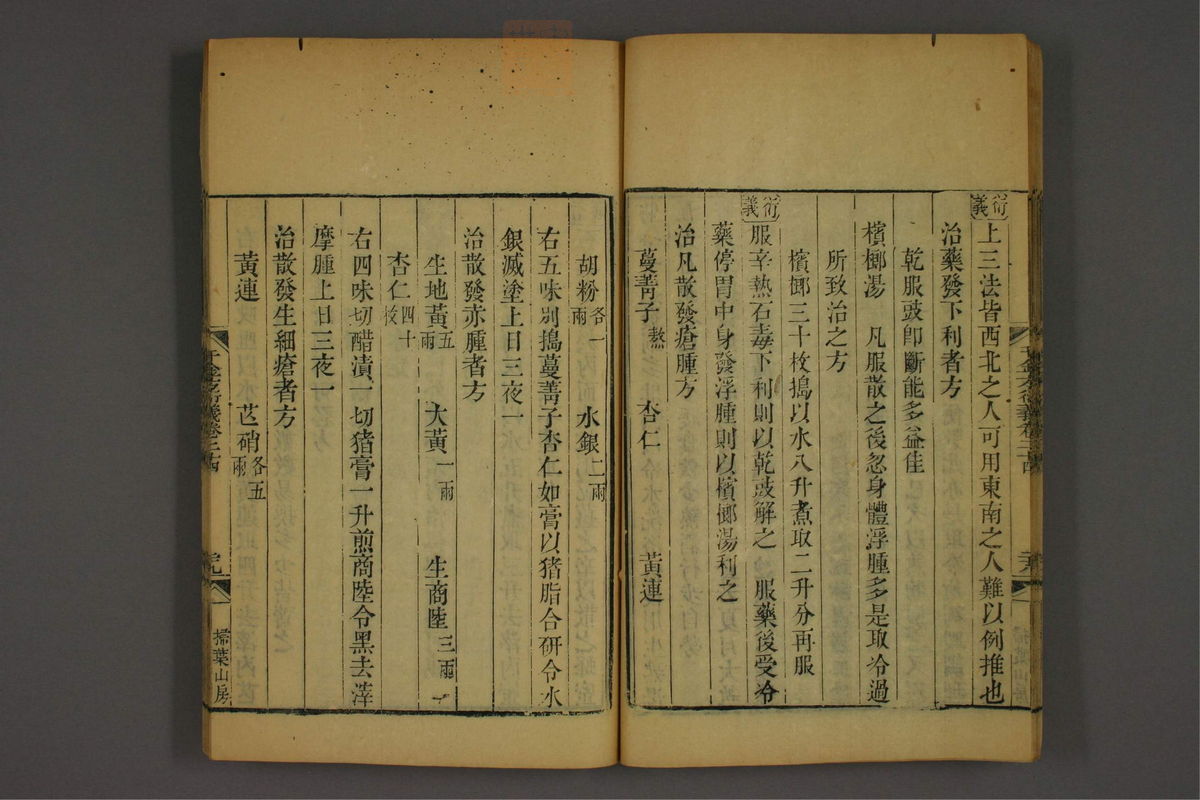 衍義上三法皆西北之人可用東南之人難以例推也
治藥發下利者方
乾服豉卽斷能多益佳
檳榔湯 凡服散之後忽身體浮腫多是取冷過
所致治之方
檳榔三十枚搗以水八升煮取二升分再服
衍義服辛熱石毒下利則以乾豉解之 服藥後受冷
藥停胃中身發浮腫則以檳榔湯利之
治凡散發瘡腫方
蔓菁子熬 杏仁 黃連
胡粉各一兩 水銀二兩
右五味別搗蔓菁子杏仁如膏以猪脂合研令水
銀滅塗上日三夜一
治散發赤腫者方
生地黃五兩 大黃一兩 生商陸三兩
杏仁四十枚
右四味切醋漬一切猪膏一升煎商陸令黑去滓
摩腫上日三夜一
治散發生細瘡者方
黃連 芒硝各五兩
千金方衍義卷二十四
掃葉山房